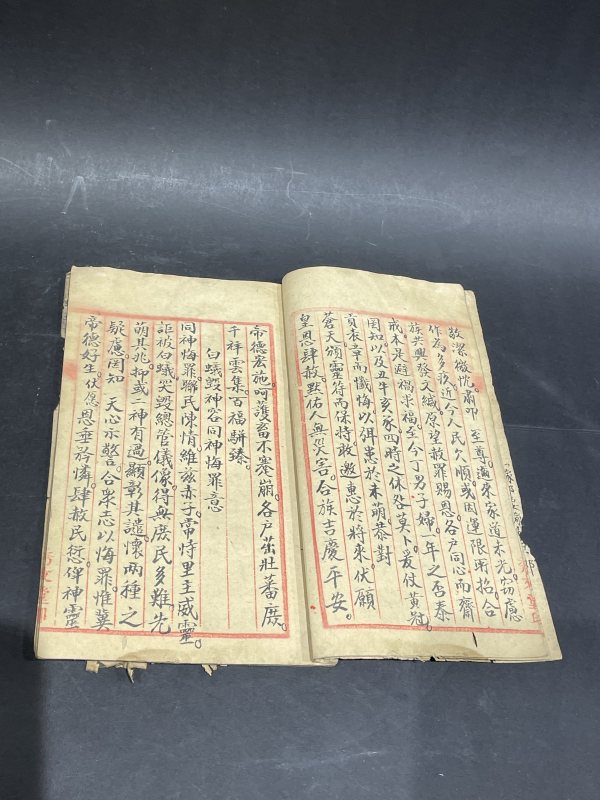 敬潔微忱。肅叩　至尊。適來家道未光。窃慮
作為多孩。近今人民欠順。或因運限所招。合
族共興發文緘。原望赦罪賜恩。各户同心而齋
戒。本是避禍求福。至今丁男子婦。一年之否泰
罔知。以及丑牛亥豕。四時之休咎莫卜。爰仗黃冠
賁表章而懺悔。以弭患於未萌。恭對
蒼天頒靈符而保持。敢邀惠於將來。伏願
皇恩肆赦。默佑人無災害。合族吉慶平安。
帝德宏施。呵護畜不蹇崩。各户茁壯蕃庶。
千祥雲集。百福駢臻。
白蟻毀神容同神悔罪意
同神悔罪。聯民陳情。維兹赤子。常恃里主威靈。
詎被白蟻突毀總管儀像。得無庶民多難。先
萌其兆。抑或一神有過。顯彰其譴。懷兩種之
疑慮。罔知　天心示警。合眾志以悔罪。惟冀
帝德好生。伏愿恩垂矜憐。肆赦民愆。俾神靈